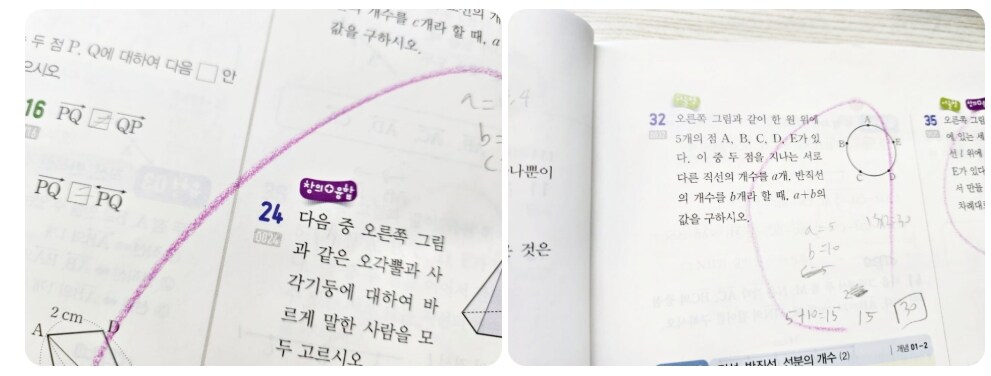 개수를 c개라 할 때, a
값을 구하시오.
두 점 P, Q에 대하여 다음 □ 안
으시오
16 PQ = QP
PQ = PQ
2 cm
A
D
창의+융합
24 다음 중 오른쪽 그림
0024
과 같은 오각뿔과 사
각기둥에 대하여 바
르게 말한 사람을 모
두 고르시오
a=
b=
나뿐이
것은
32 오른쪽 그림과 같이 한 원 위에
5개의 점 A, B, C, D, E가 있
다. 이 중 두 점을 지나는 서로
다른 직선의 개수를 a개, 반직선
의 개수를 b개라 할 때, a+b의
값을 구하시오.
A
B
E
C
D
a=5
b=10
5+10=15
15
30
35 오른쪽 그림
에 있는 세
선 l 위에
E가 있다
서 만들
차례대로
직선, 반직선, 선분의 개수 (2)
개념 01-2